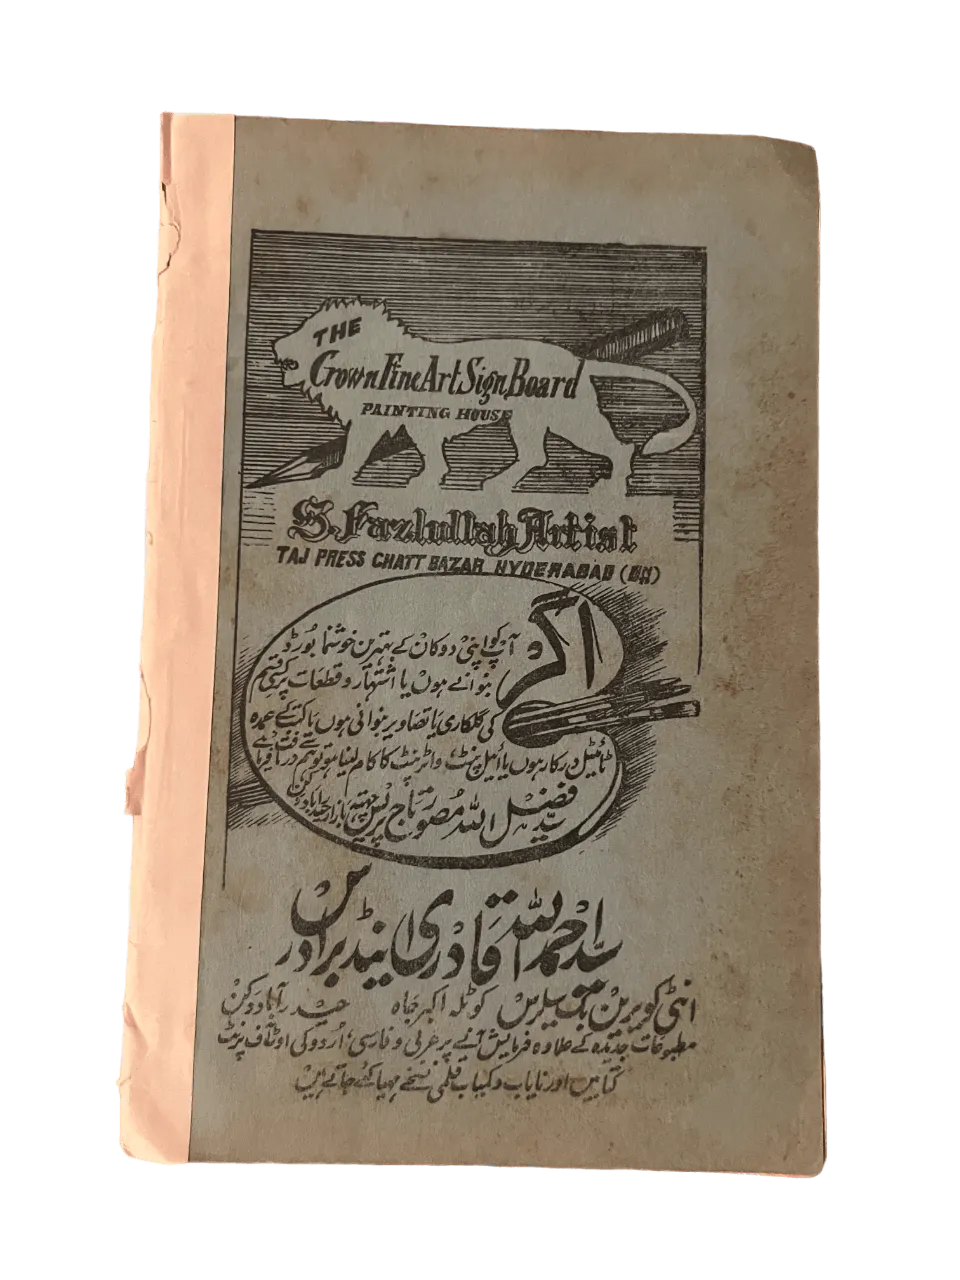 THE
Crown Fine Art Sign Board
PAINTING HOUSE
S. Fazlullah Artist
TAJ PRESS CHATT BAZAR HYDERABAD (DN)
اگر
آپ کو اپنی دوکان کے بہترین خوشنما بورڈ
بنوانے ہوں یا اشتہار و قطعات پر کسی قسم
کی گلکاری یا تصاویر بنوانی ہوں یا کتب کے عمدہ
ٹائیٹل درکار ہوں یا آئیل پنٹ، واٹر پنٹ کا کام لینا ہو تو ہم سے
سید فضل اللہ مصور تاج پریس چھتہ بازار حیدرآباد دکن
سید احمد اللہ قادری اینڈ برادرس
انٹی کویرین بک سیلرس کوٹلہ اکبر جاہ حیدرآباد دکن
مطبوعات جدیدہ کے علاوہ فرمایش آنے پر عربی و فارسی، اُردو کی اوٹ آف پرنٹ
کتابیں اور نایاب و کمیاب قلمی نسخے مہیا کئے جاتے ہیں